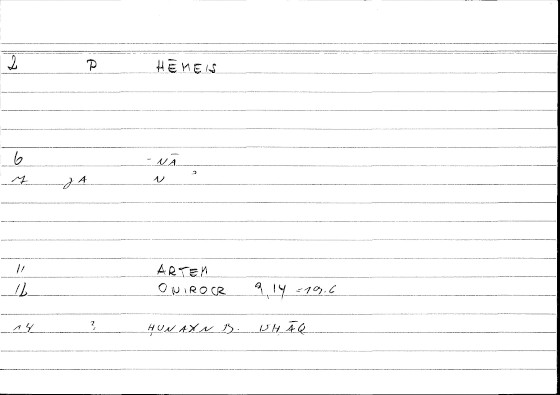 2 P HĒMEIS
6 -NĀ
7 JA N ?
11 ARTEM
12 ONIROCR 9,14 =19.6
14 ? HUNAXN B.